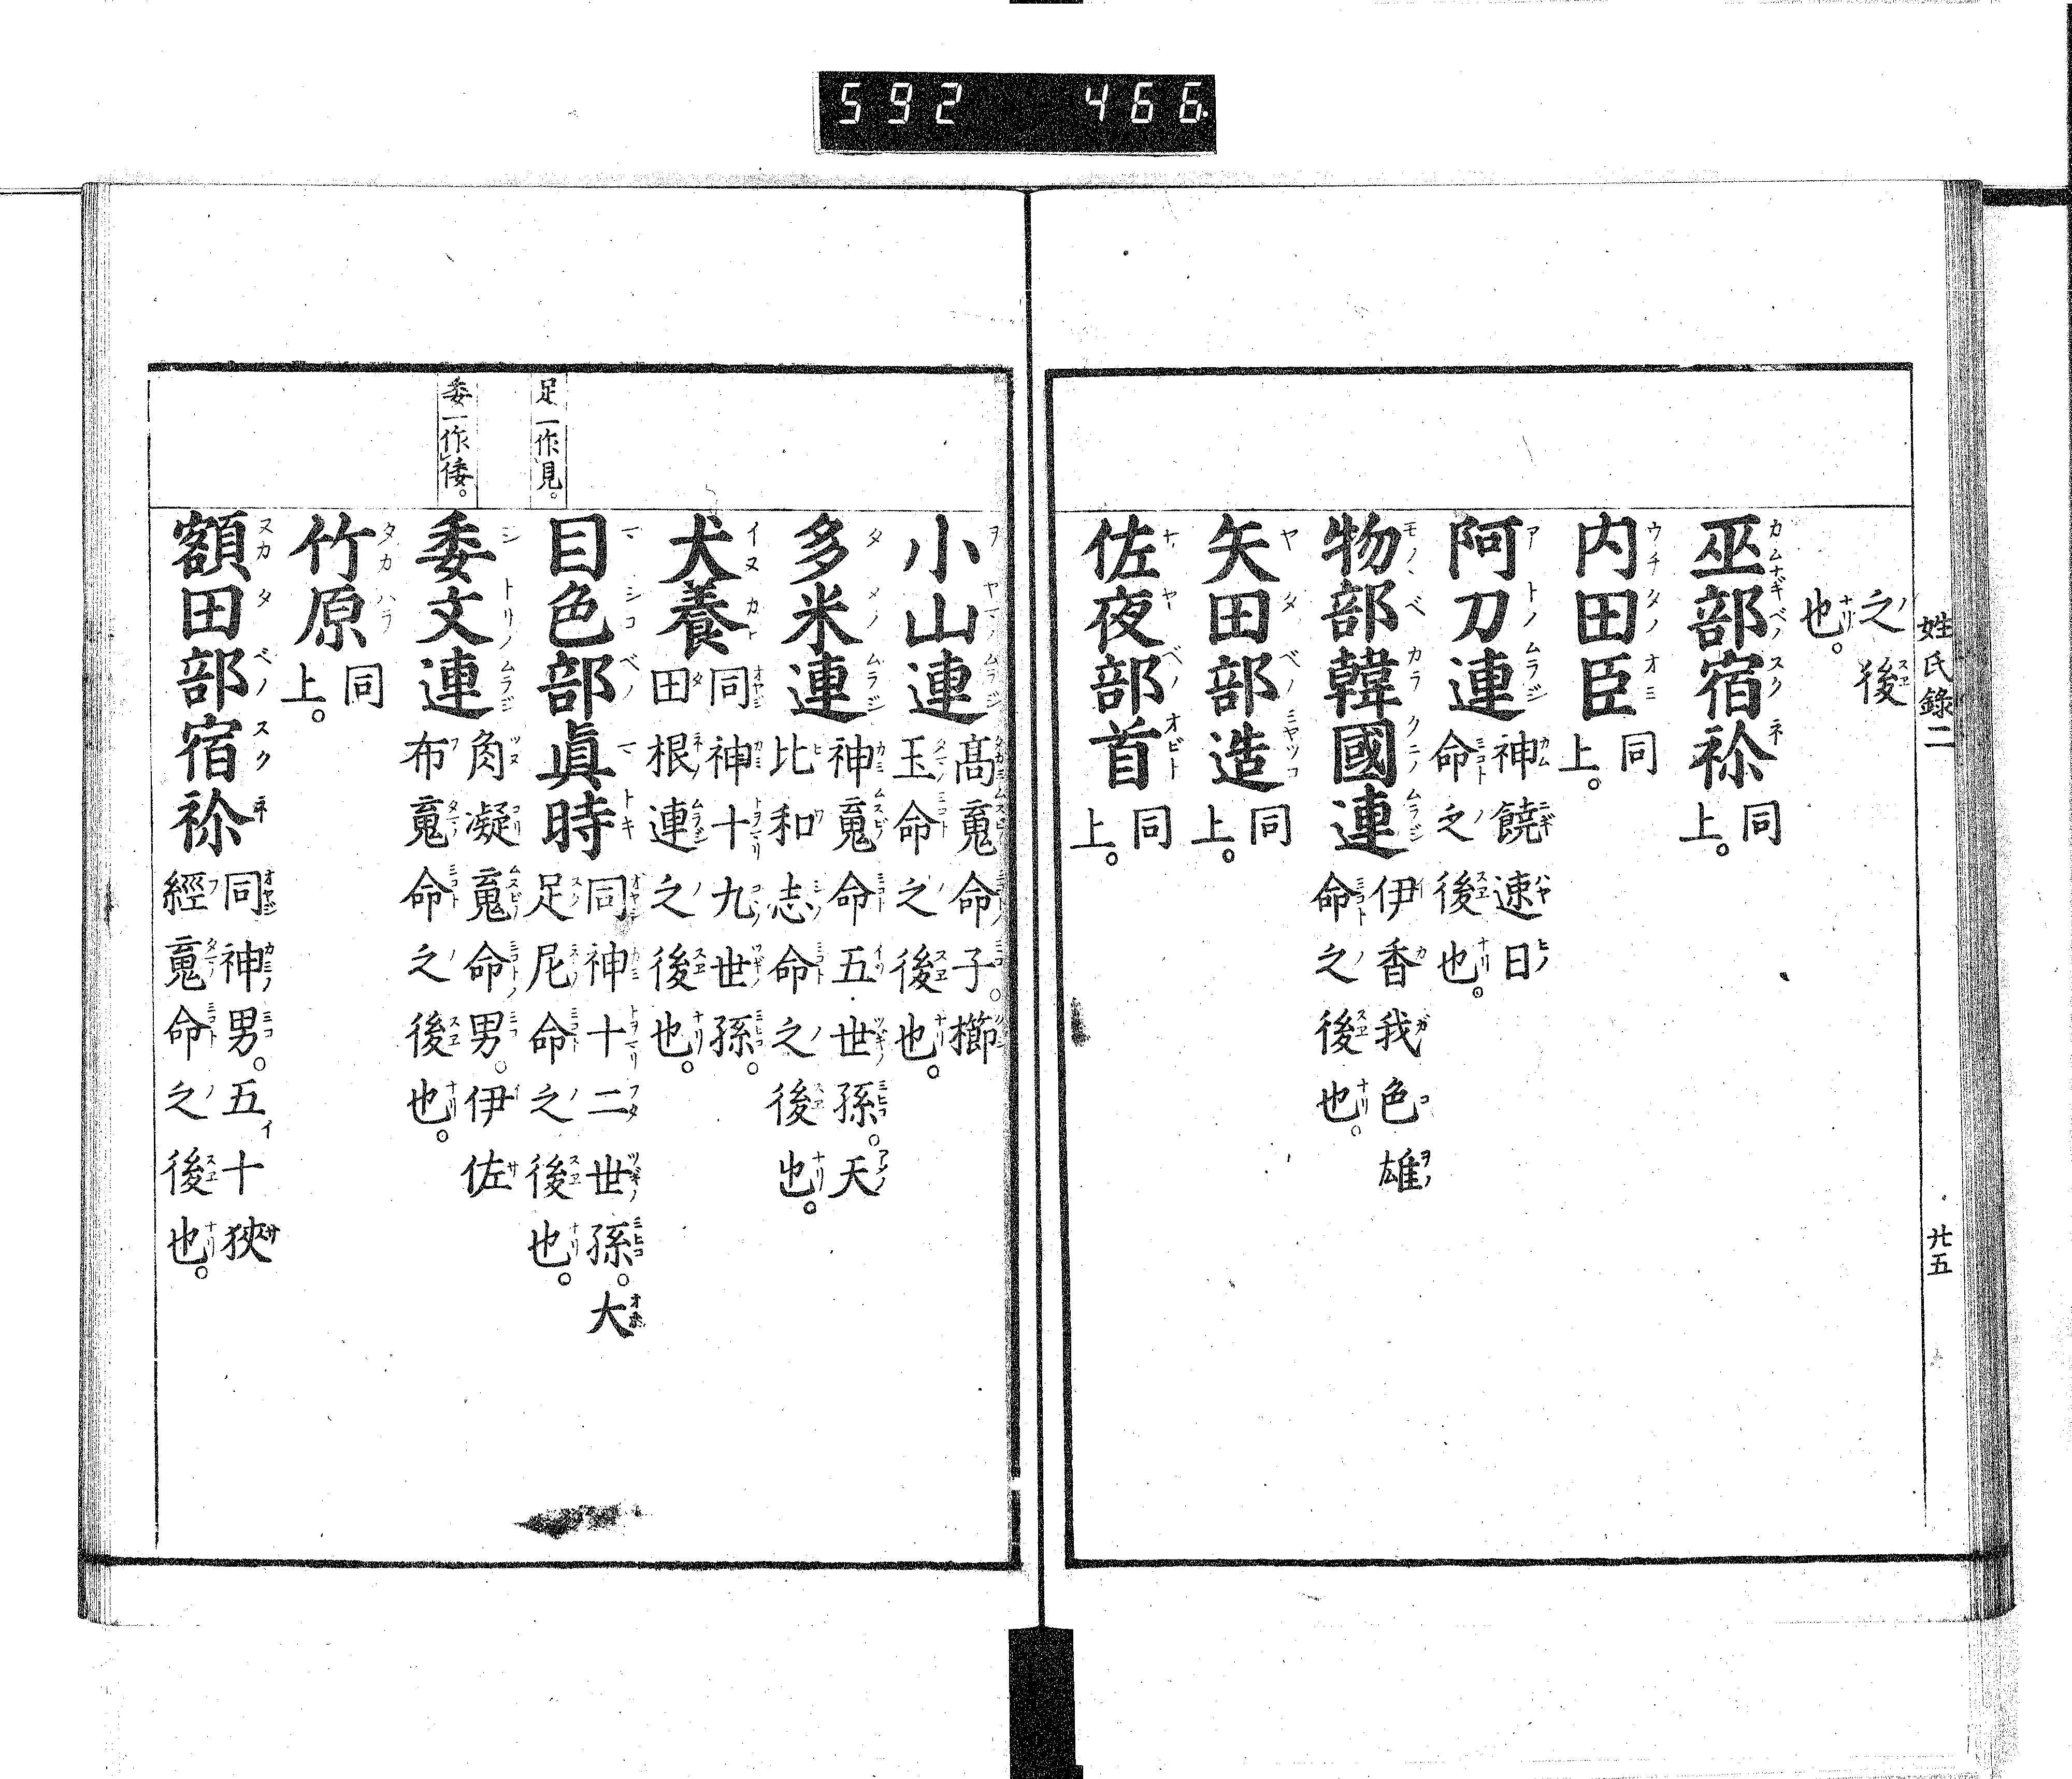 592 466
姓氏錄二
廿五
之後
也。
巫部宿祢 同
上。
内田臣 同
上。
阿刀連 神饒速日
命之後也。
物部韓國連 伊香我色雄
命之後也。
矢田部造 同
上。
佐夜部首 同
上。
小山連 高䰟命子。櫛
玉命之後也。
多米連 神䰟命五世孫。天
比和志命之後也。
犬養 同神十九世孫。
田根連之後也。
足一作見。
目色部眞時 同神十二世孫。大
足尼命之後也。
委一作倭。
委文連 角凝䰟命男。伊佐
布䰟命之後也。
竹原 同
上。
額田部宿祢 同神男。五十狹
經䰟命之後也。